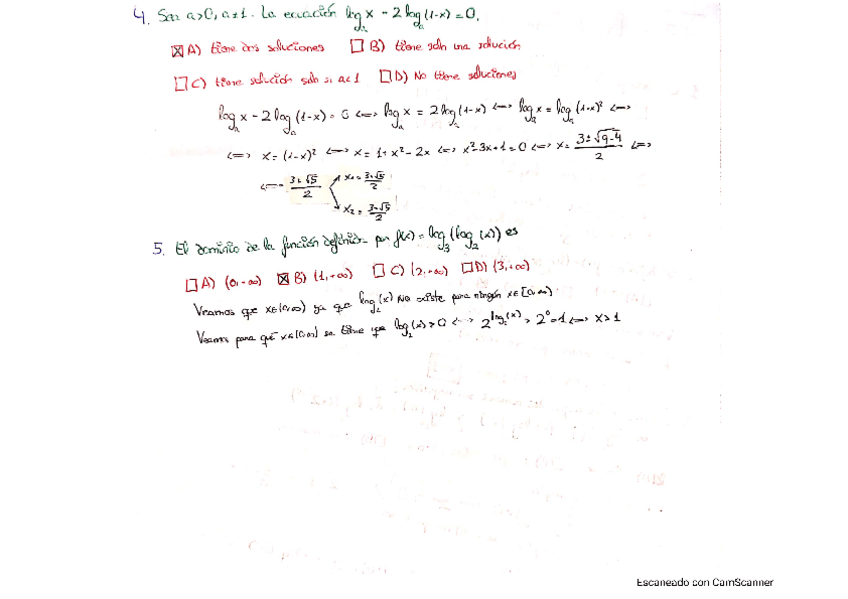 4. Sea a>0, a≠1. La ecuación log_a x - 2 log_a (1-x) = 0,
☒ A) tiene dos soluciones ☐ B) tiene sólo una solución
☐ C) tiene solución sólo si a<1 ☐ D) No tiene soluciones
log_a x - 2 log_a (1-x) = 0 <=> log_a x = 2 log_a (1-x) <=> log_a x = log_a (1-x)² <=>
<=> x = (1-x)² <=> x = 1 + x² - 2x <=> x² - 3x + 1 = 0 <=> x = (3 ± √(9-4))/2 <=>
<=> (3 ± √5)/2 x₁ = (3+√5)/2
x₂ = (3-√5)/2
5. El dominio de la función definida por f(x) = log_3 (log_2 (x)) es
☐ A) (0, +∞) ☒ B) (1, +∞) ☐ C) (2, +∞) ☐ D) (3, +∞)
Veamos que x∈(0,∞) ya que log_2 (x) No existe para ningún
Veamos para qué x∈(0,∞) se tiene que log_2 (x) > 0 <=> 2^{log_2 (x)} > 2⁰ = 1 <=> x > 1
Escaneado con CamScanner